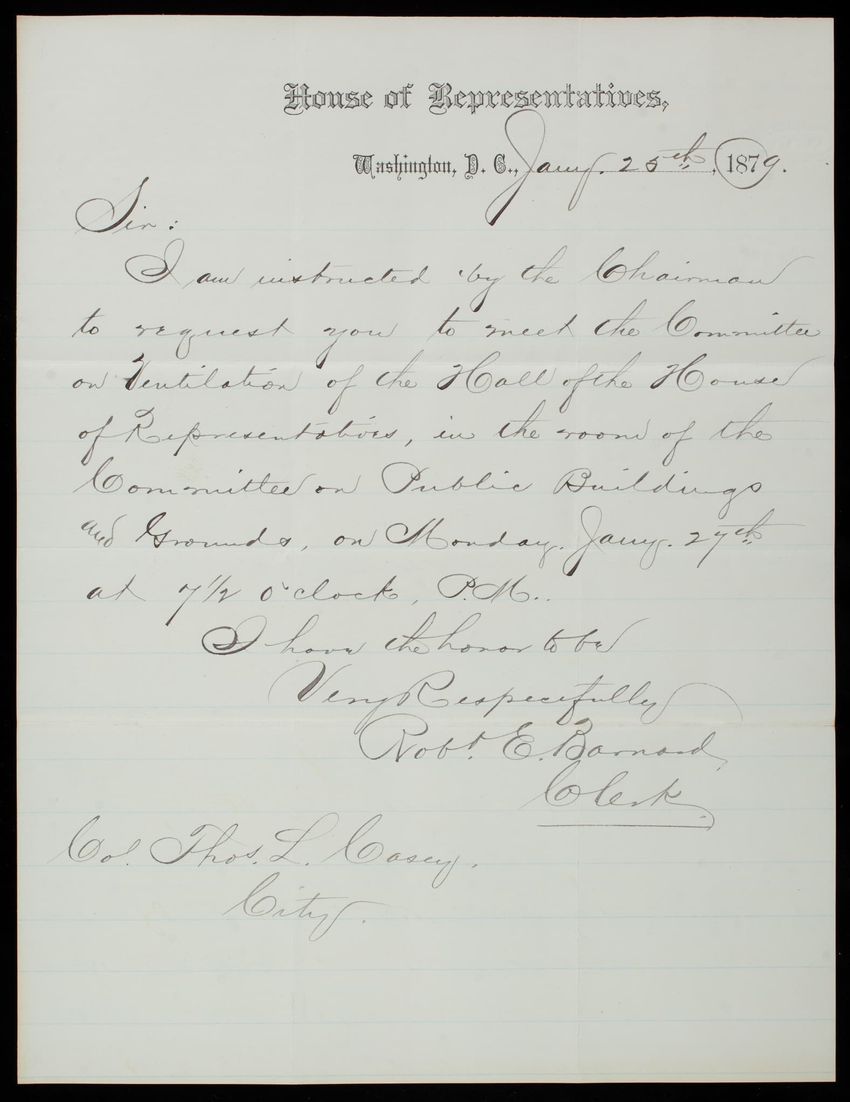 House of Representatives,
Washington, D. C., Jany. 25th, 1879.
Sir:
I am instructed by the Chairman
to request you to meet the Committee
on Ventilation of the Hall of the House
of Representatives, in the room of the
Committee on Public Buildings
and Grounds, on Monday. Jany. 27th
at 7 1/2 o'clock, P.M..
I have the honor to be
Very Respectfully
Robt. E. Barnard,
Clerk.
Col. Thos. L. Casey.
City.